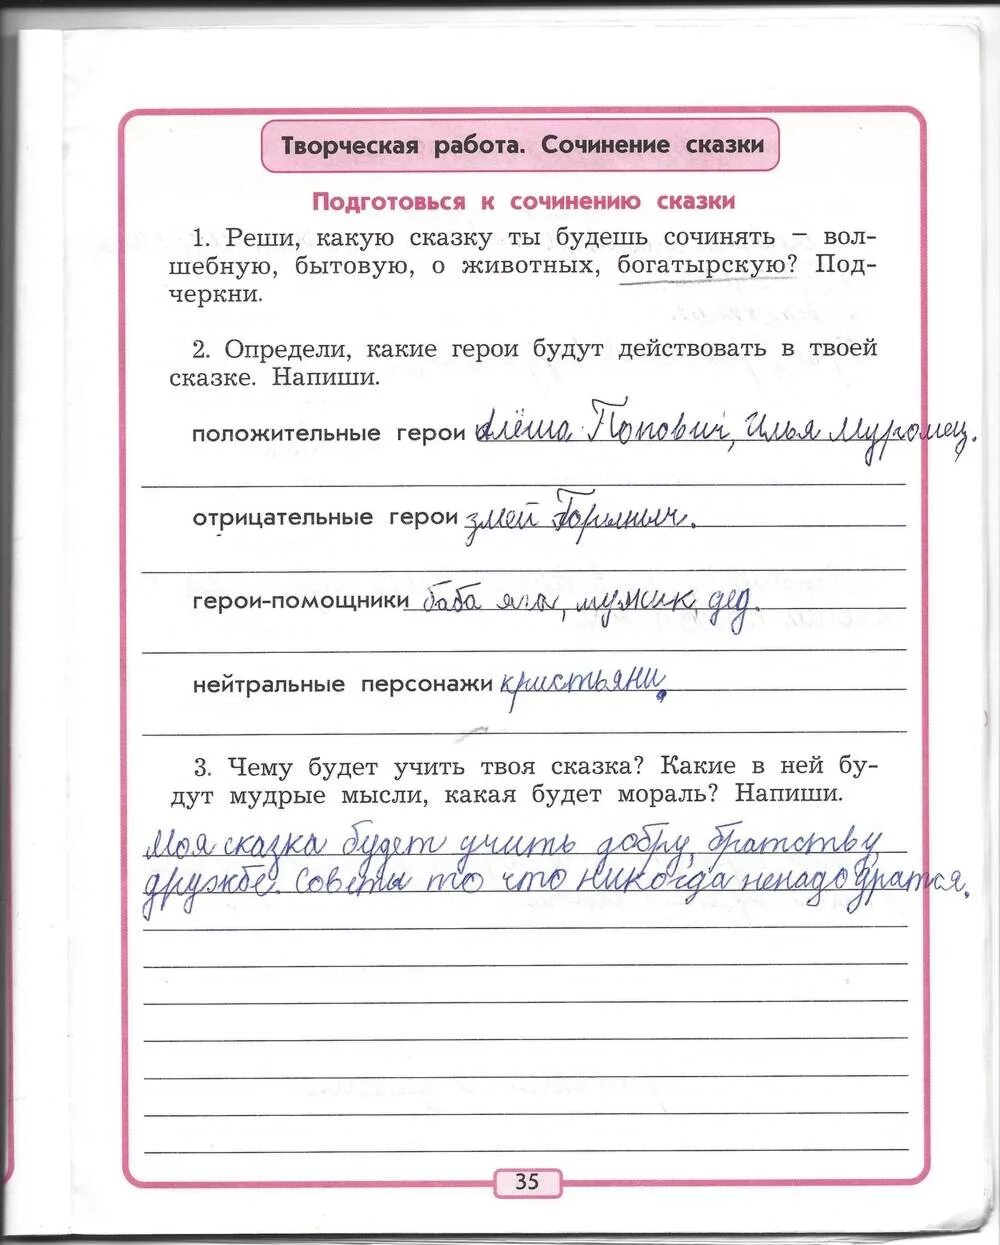 Творческая работа. Сочинение сказки
Подготовься к сочинению сказки
1. Реши, какую сказку ты будешь сочинять – вол-
шебную, бытовую, о животных, богатырскую? Под-
черкни.
2. Определи, какие герои будут действовать в твоей
сказке. Напиши.
положительные герои Алёша Попович, Илья Муромец.
отрицательные герои змей Горыныч.
герои-помощники баба яга, мужик, дед.
нейтральные персонажи кристьяни.
3. Чему будет учить твоя сказка? Какие в ней бу-
дут мудрые мысли, какая будет мораль? Напиши.
Моя сказка будет учить добру, братству,
дружбе. Советы то что никогда ненадо дратся.
35